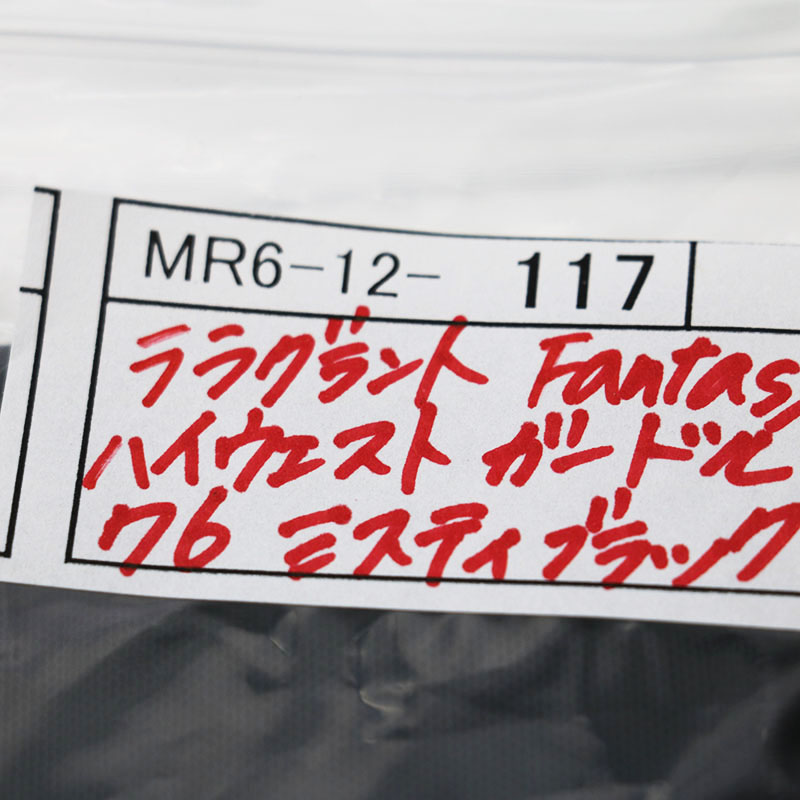 MR6-12- 117
ララグラント Fantas
ハイウエスト ガードル
76 ミスティブラック